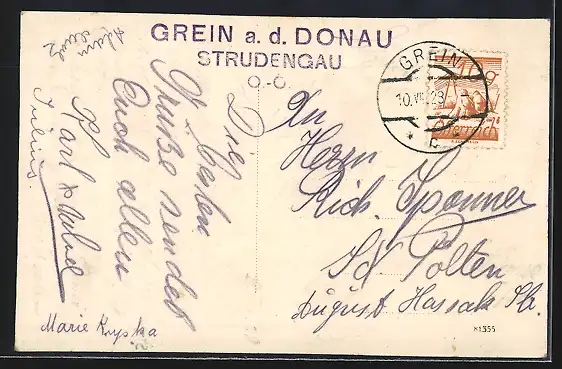 GREIN a. d. DONAU
STRUDENGAU
O.-Ö.
GREIN
10.VII.28
10 g
Österreich
Die
besten
Grüße sendet
Euch allen
Karl
Marie Kuska
An
Herrn
Rich. Sponner
St Pölten
August Hassak Str.
K1355